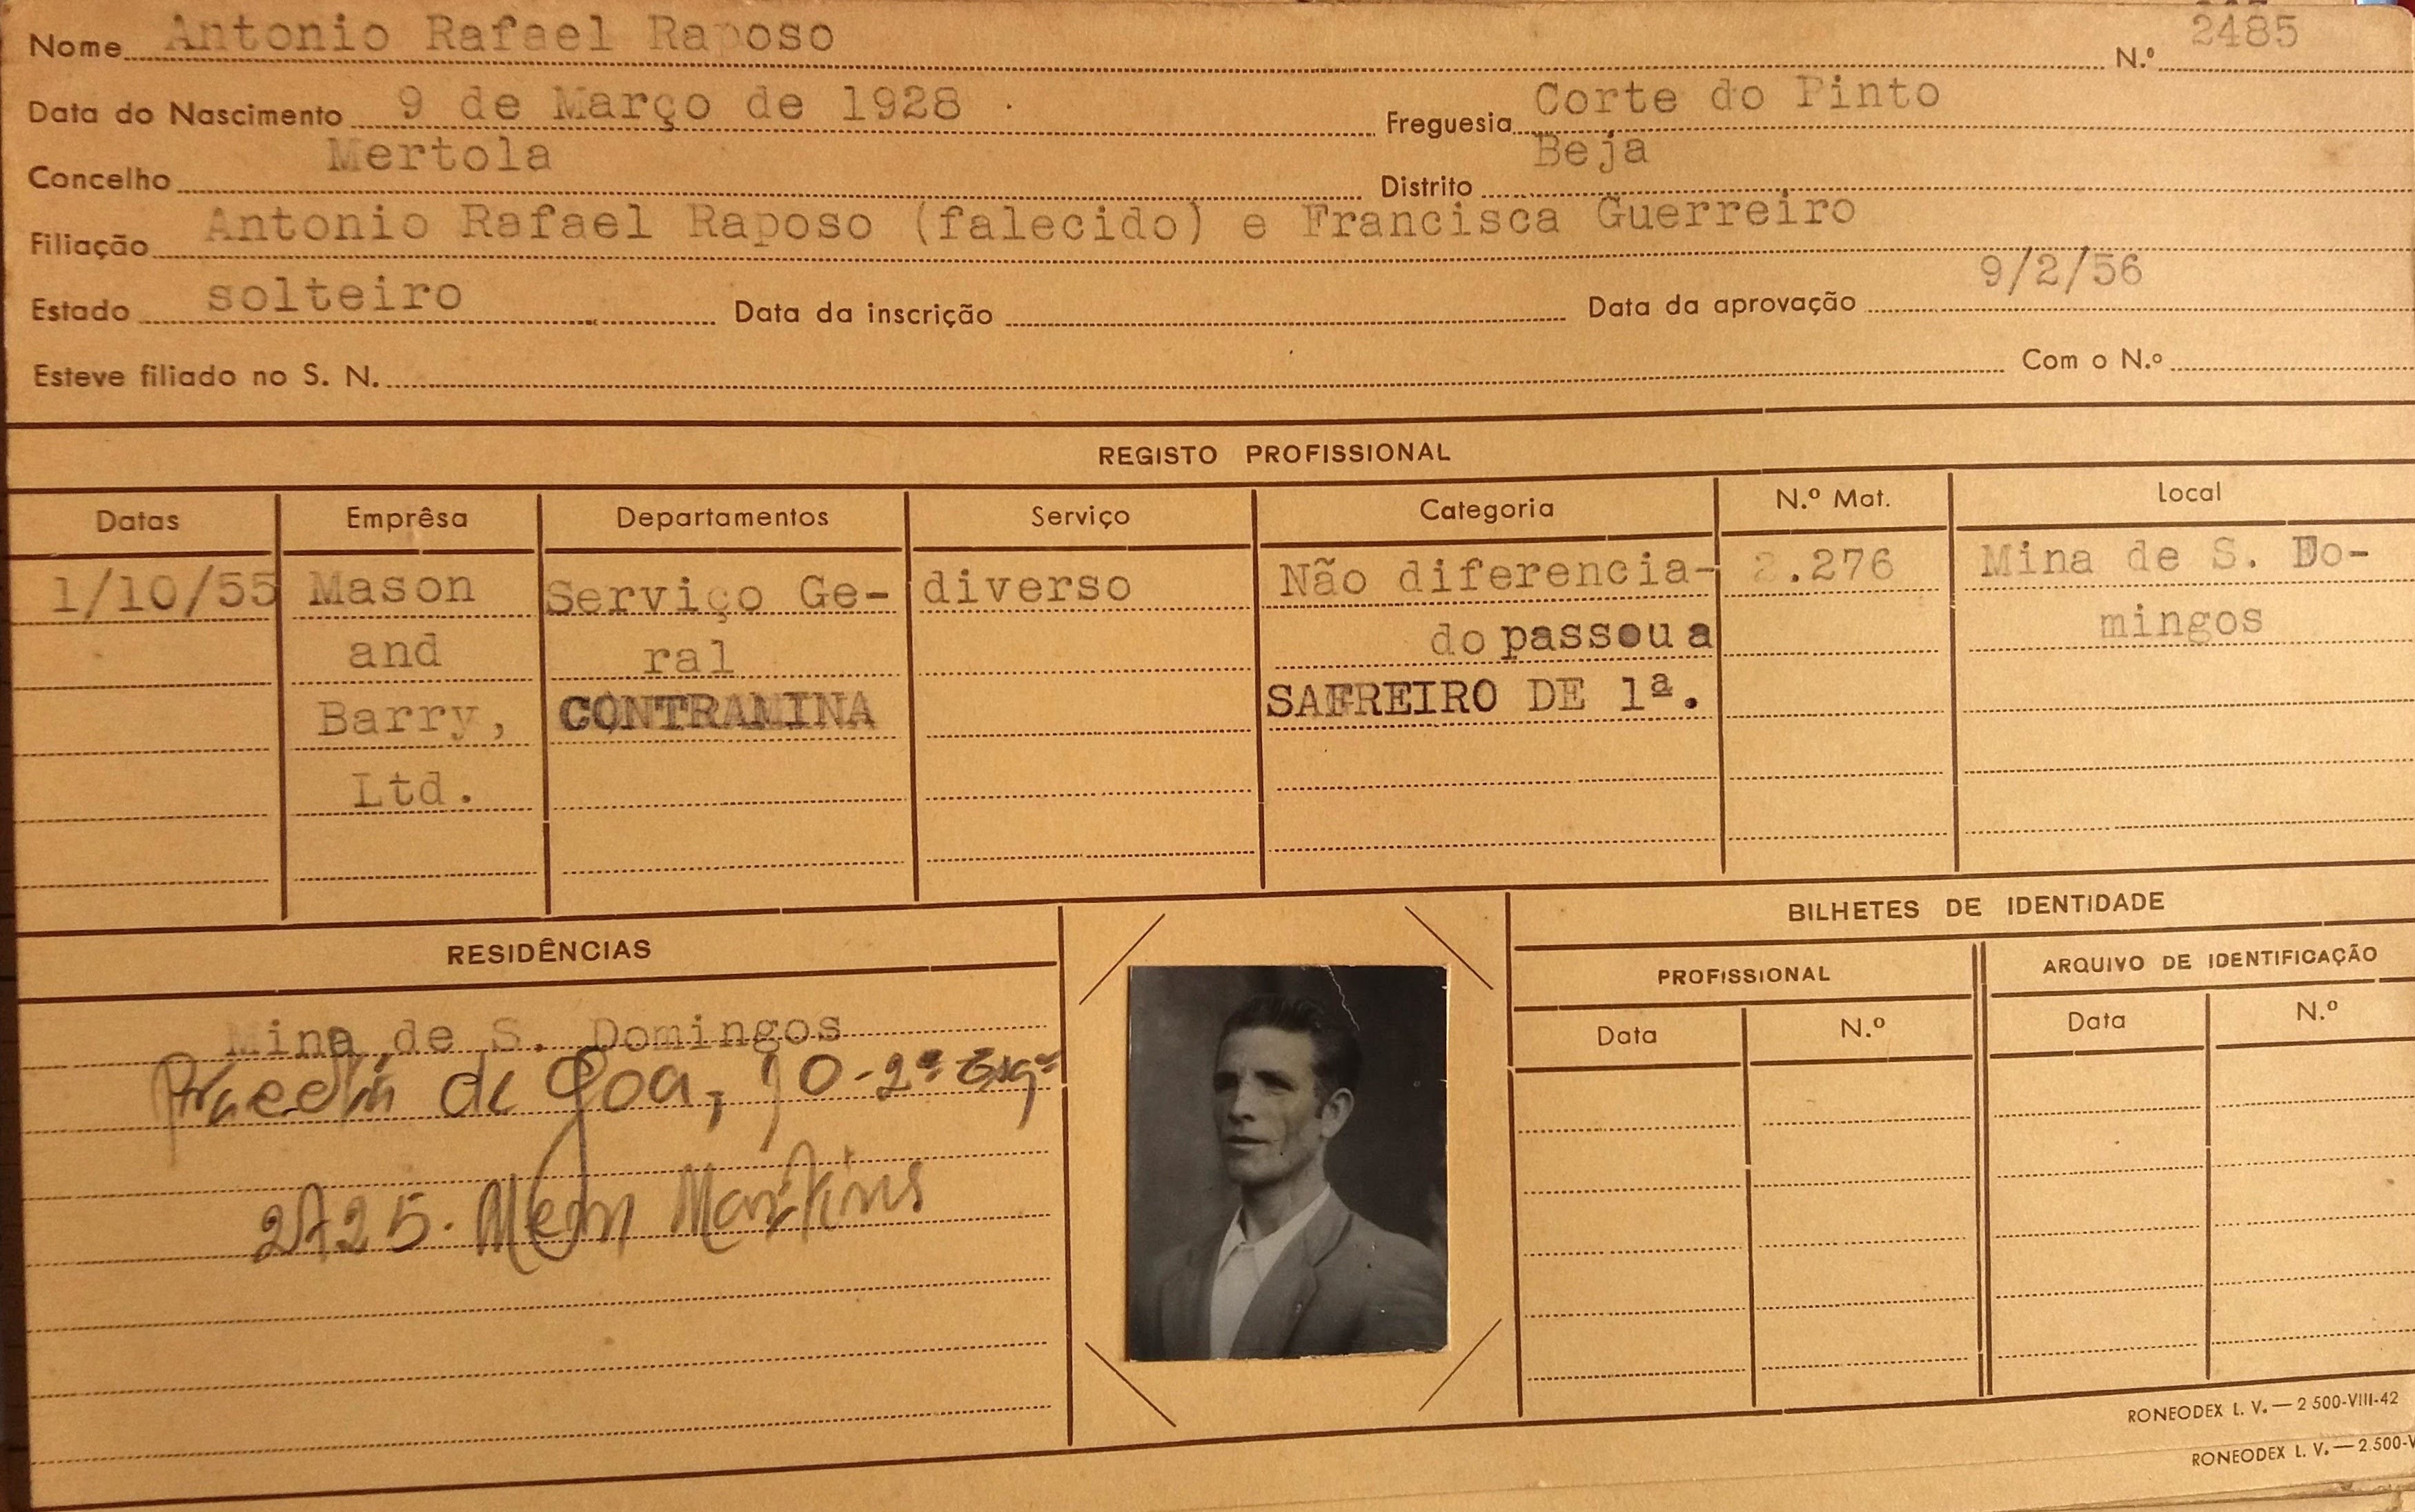 Nome Antonio Rafael Raposo N.º 2485
Data do Nascimento 9 de Março de 1928 Freguesia Corte do Pinto
Concelho Mertola Distrito Beja
Filiação Antonio Rafael Raposo (falecido) e Francisca Guerreiro
Estado solteiro Data da inscrição Data da aprovação 9/2/56
Esteve filiado no S. N. Com o N.º
REGISTO PROFISSIONAL
Datas Emprêsa Departamentos Serviço Categoria N.º Mat. Local
1/10/55 Mason Serviço Ge- diverso Não diferencia- 2.276 Mina de S. Do-
and ral do passou a mingos
Barry, CONTRAMINA SAFREIRO DE 1ª.
Ltd.
RESIDÊNCIAS
Mina de S. Domingos
de Goa, 10-2º Esqº
2725. Mem Martins
BILHETES DE IDENTIDADE
PROFISSIONAL ARQUIVO DE IDENTIFICAÇÃO
Data N.º Data N.º
RONEODEX L. V. — 2 500-VIII-42
RONEODEX L. V. — 2.500-V